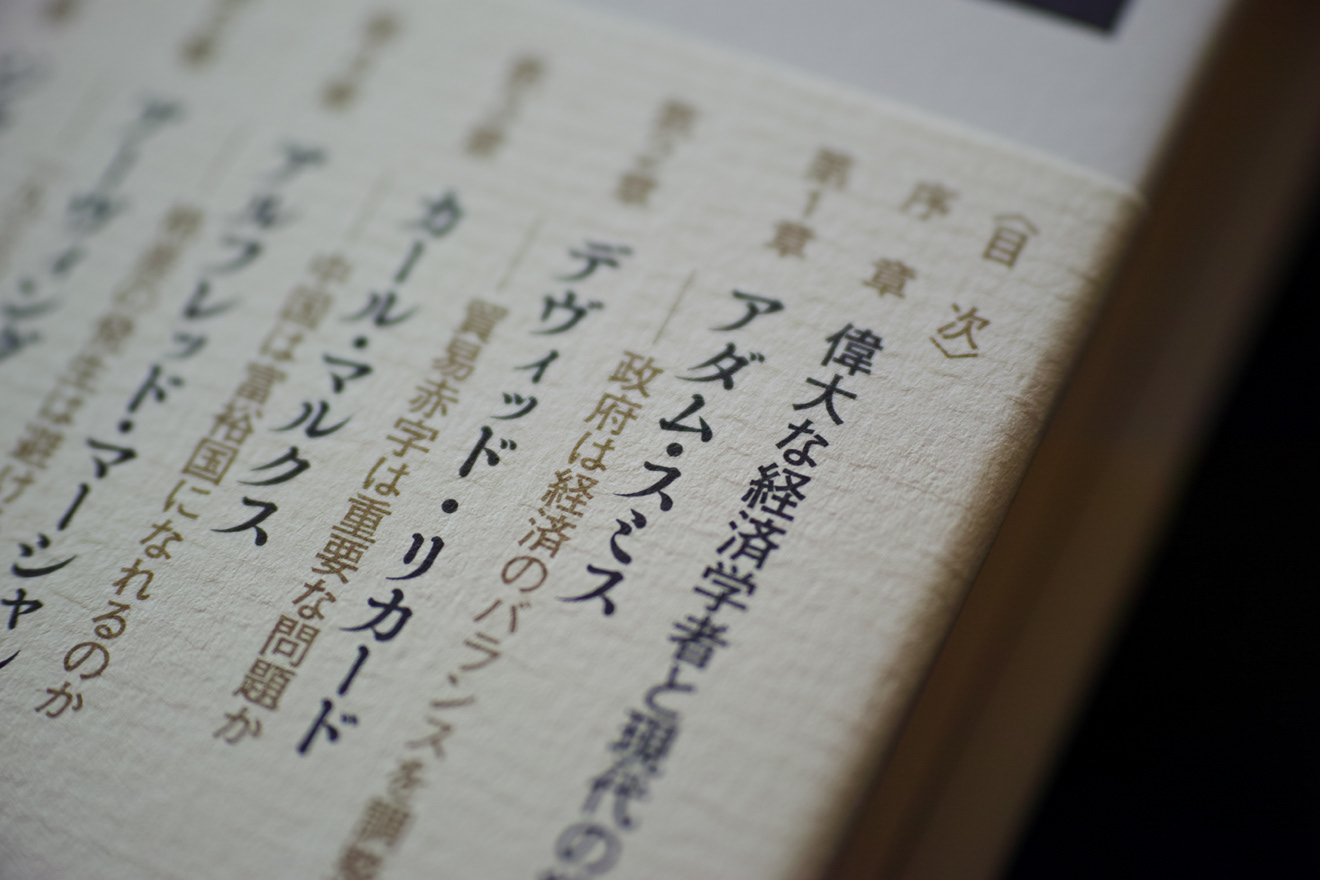 〈目次〉
序章 偉大な経済学者と現代の
第1章 アダム・スミス
――政府は経済のバランスを調整
第2章 デヴィッド・リカード
――貿易赤字は重要な問題か
第3章 カール・マルクス
――中国は富裕国になれるのか
アルフレッド・マーシャ
アーヴィング